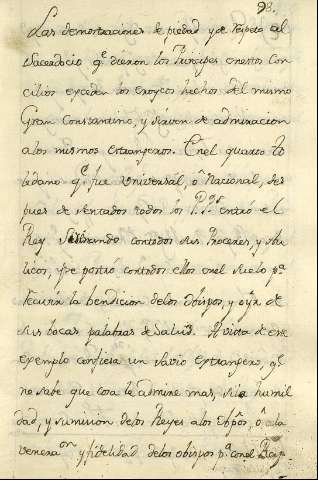 98.
Las demostraciones de piedad y de respeto al
Sacerdocio qe. dieron los Principes en estos Con
cilios exceden los eroycos hechos del mismo
Gran Constantino, y sirven de admiracion
a los mismos extrangeros. En el quarto To
ledano qe. fue Universal, ô Nacional, des
pues de sentados todos los P.Ps. entró el
Rey Sisenando con todos sus Proceres, y Au
licos, y se postró con todos ellos en el suelo pa.
recivir la bendicion de los Obispos, y oyr de
sus bocas palabras de salud. A vista de este
exemplo confiesa un savio extrangero, qe.
no sabe que cosa le admire mas, si la humil
dad, y sumision de los Reyes a los Obpos, ô a la
veneraon. y fidelidad de los obispos pa. con el Rey